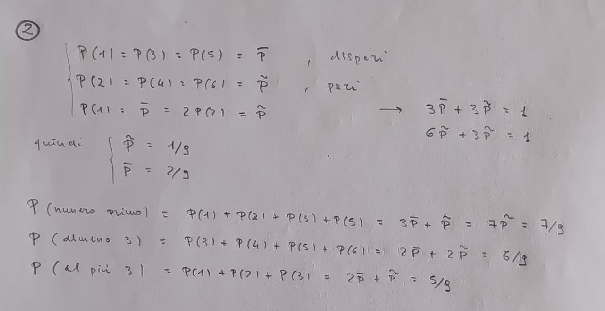 2
P(1) = P(3) = P(5) = p̄ , dispari
P(2) = P(4) = P(6) = p̃ , pari
P(1) = p̄ = 2P(2) = p̃ → 3p̄ + 3p̃ = 1
6p̃ + 3p̃ = 1
quindi { p̃ = 1/9
p̄ = 2/9
P (numero primo) = P(1) + P(2) + P(3) + P(5) = 3p̄ + p̃ = 7p̃ = 7/9
P (almeno 3) = P(3) + P(4) + P(5) + P(6) = 2p̄ + 2p̃ = 6/9
P (al più 3) = P(1) + P(2) + P(3) = 2p̄ + p̃ = 5/9